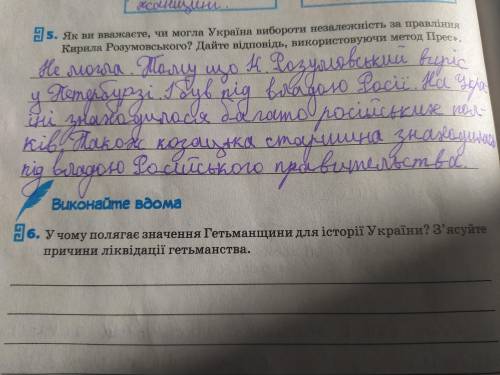 жанщини.
5. Як ви вважаєте, чи могла Україна вибороти незалежність за правління
Кирила Розумовського? Дайте відповідь, використовуючи метод Прес».
Не могла. Тому що К. Розумовський виріс
у Петербурзі. І був під владою Росії. На Укра-
їні знаходилося багато російських пол-
ків. Також козацька старшина знаходилася
під владою Російського правительства.
Виконайте вдома
6. У чому полягає значення Гетьманщини для історії України? З'ясуйте
причини ліквідації гетьманства.